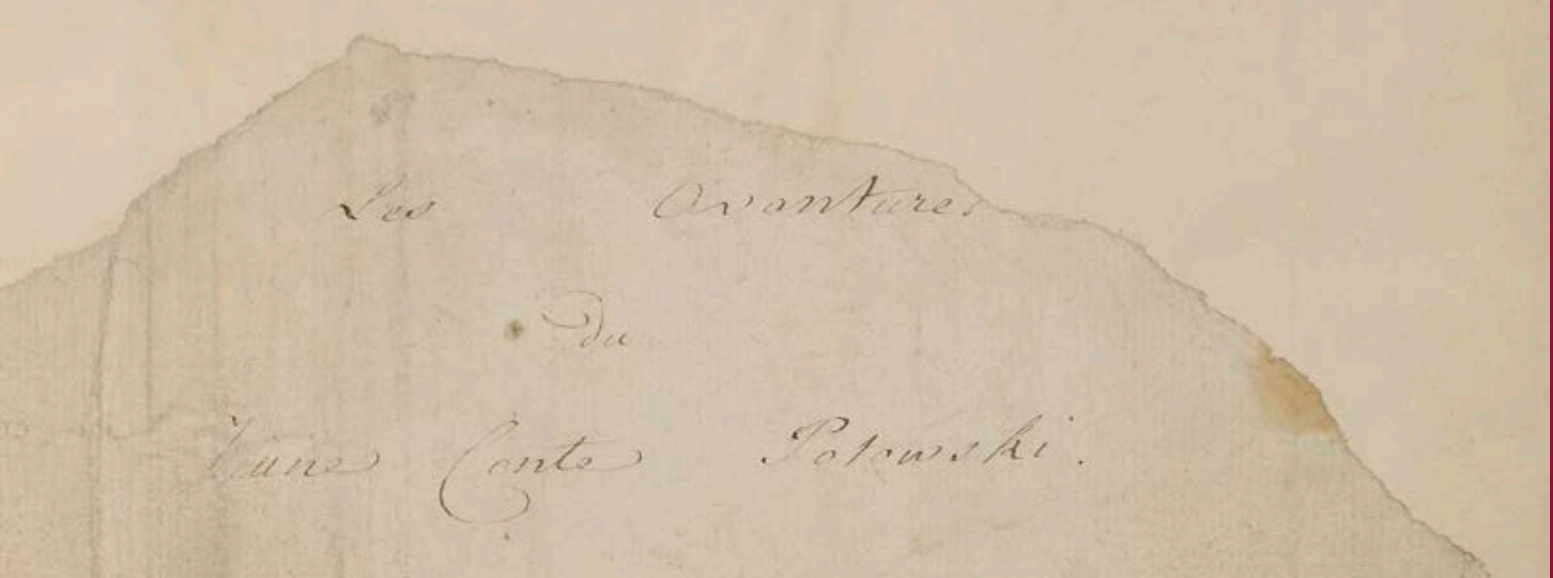 Les Avantures
du
Jeune Conte Potowski.